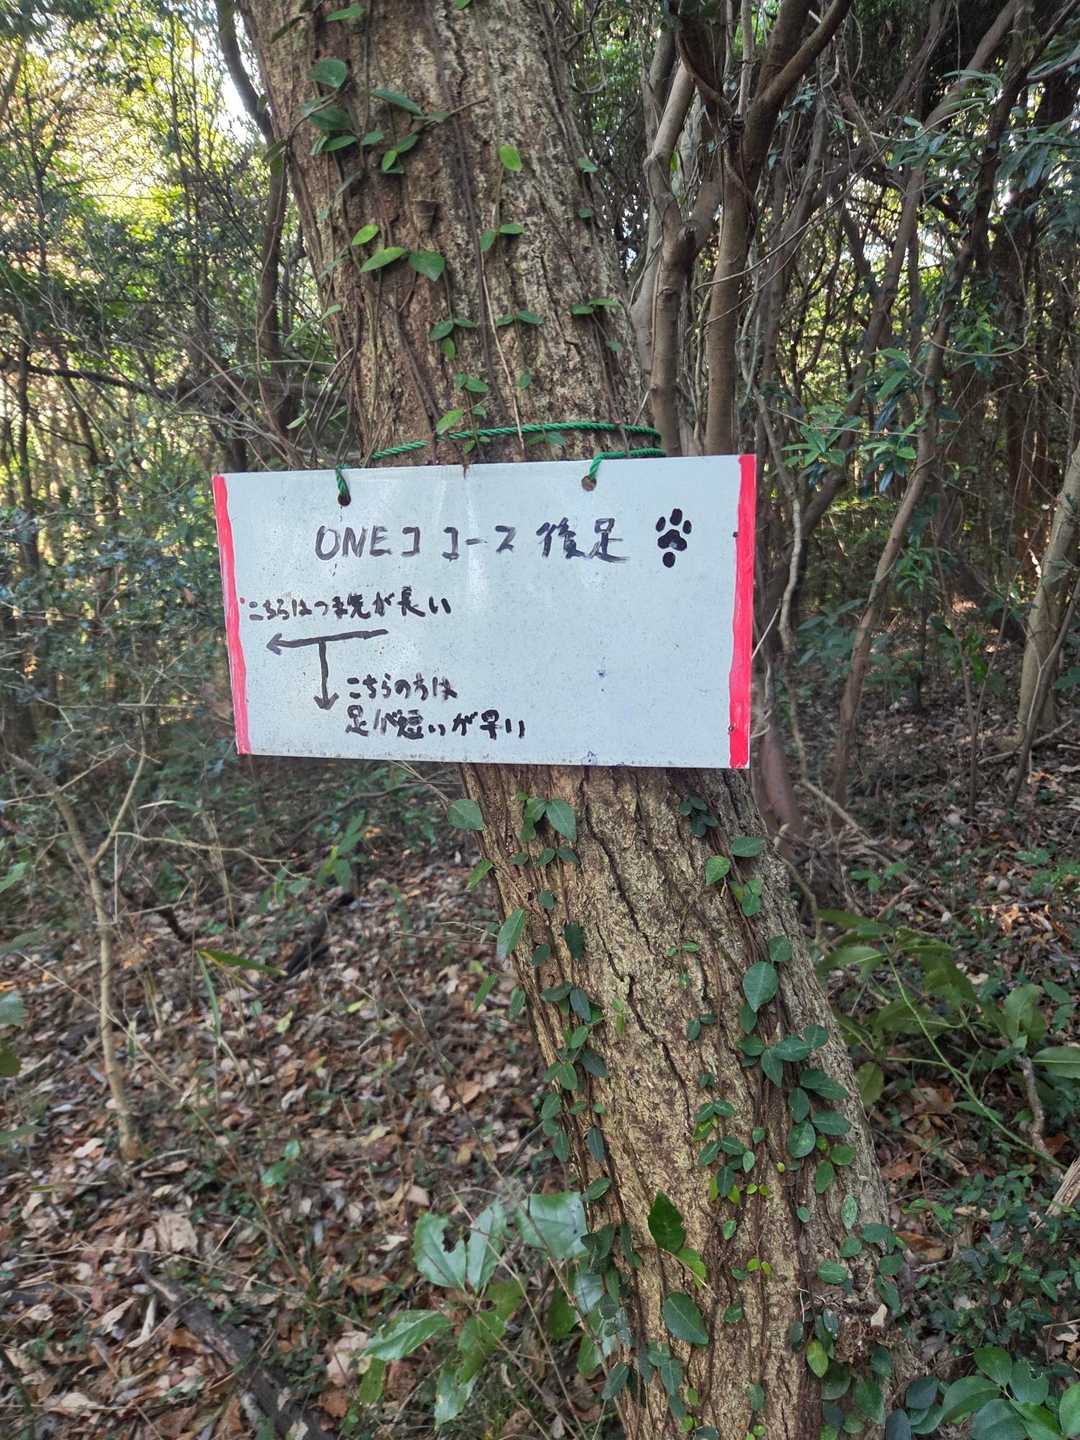 ONEコ コース 後足
こちらはつま先が長い
こちらの方は
足が短いが早い